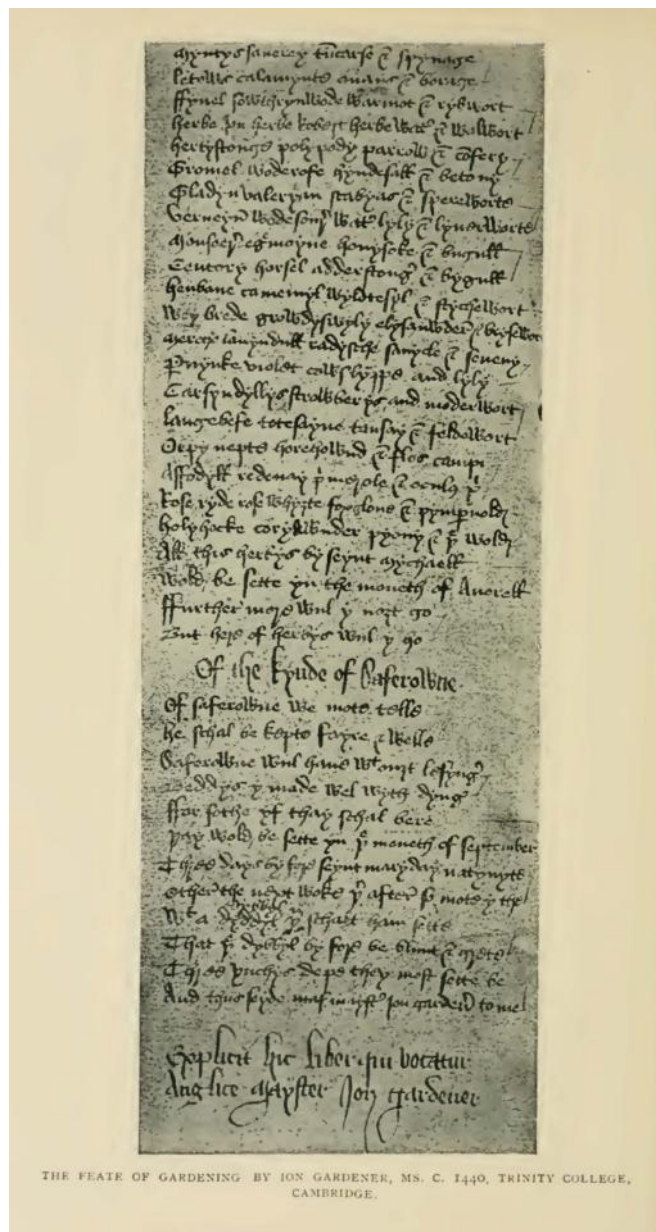 Myntys sauerey tuncarse & spynage
letows calamynte auans & borage
ffynel sowthrynwode warmot & rybwort
herbe Jon herbe Robert herbe Walt & Walwort
hertystonge polypody parrow & comfery
Gromel woderofe hyndesall & betony
Gladyn valeryan scabyas & sperewort
verueyn wodesour Wat lyly & lyuerworte
Mouseer egrmoyne honysoke & bugull
Centory horsel adderstong & bygull
henbane camemyl wyldtesyl & stychewort
Weybrede growdyswyly elysauwder & brysewort
Mercy lauyndull radysche sanycle & seueny
Peruynke violet cowslyppe and lyly
Carsyndyllys strowberys and moderwort
langebefe totesayne tansay & feldewort
Orpy nepte horehownd & flos campi
Affodyll redenay primerole & oculus
Rose ryde rose whyte foxgloue & pympernold
holyhocke coryawnder pyony &
All this herbys by seynt Mychaell
Wold be sette yn the moneth of Auerell
ffurther more wul y nozt go
But here of herbys wul y ho
Of the kynde of Saferowne
Of saferowne we mote telle
he schal be kepte fayre & welle
Saferowne wul haue wt ouzt lesyng
Beddys y made wel wyth dyng
ffor sothe yf thay schal bere
þay wold be sette yn þe moneth of september
Three days by fore seynt mary day natyuyte
other the next woke þer after so mote y the
Wt a dybbyl schalt ham sette
That dybbyl by fore be blunt & grete
Three ynchys depe they most sette be
And thus seyde mayster Jon gardener to me
Explicit hic liber qui vocatur
Anglice Mayster Jon Gardener
THE FEATE OF GARDENING BY ION GARDENER, MS. C. 1440, TRINITY COLLEGE,
CAMBRIDGE.